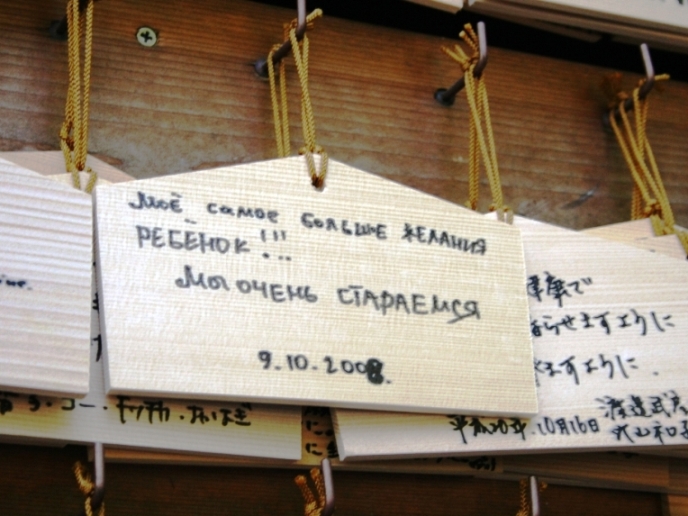 Моё самое большое желания
РЕБЕНОК !!!
Мы ОЧЕНЬ СТАРАЕМСЯ
9.10.2008.
摩で
らせますように
ますように.
平成20年.10月16日